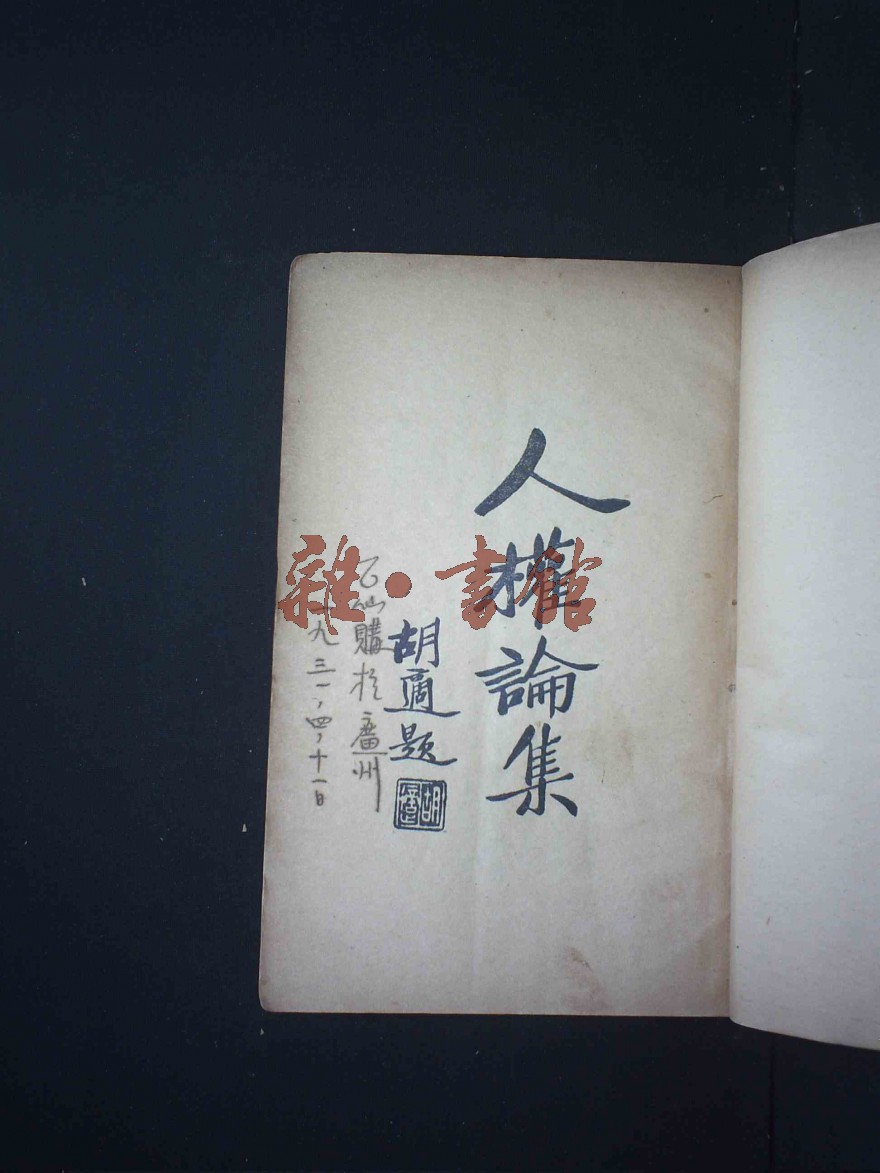 人權論集
胡適題
胡適
乙仙購於廣州
一九三一、四、十一日
雜·書館